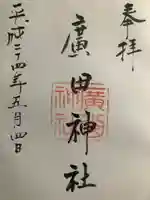 奉拝
廣田神社
平成二十四年五月四日
廣田
神社